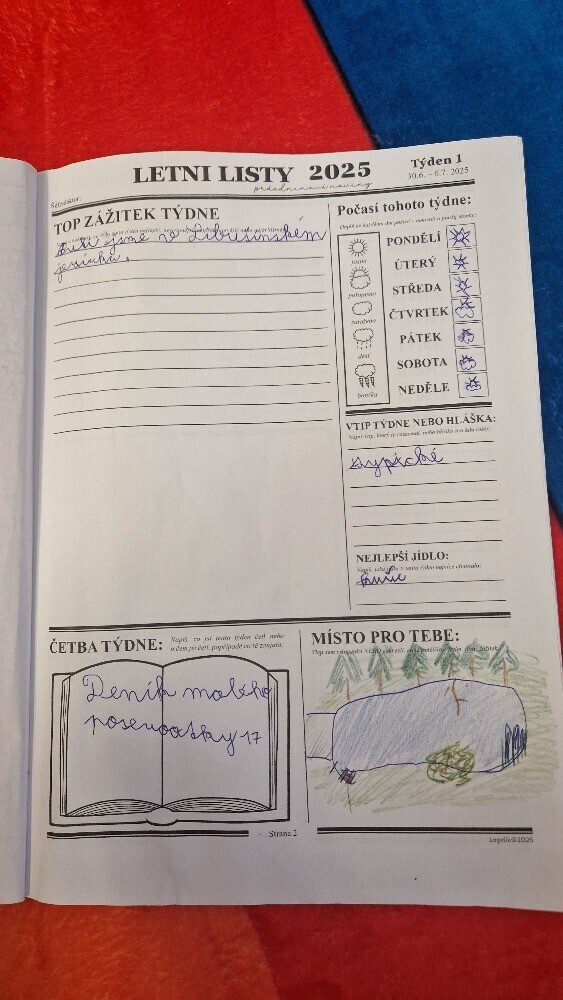 LETNI LISTY 2025
prázdninové noviny
Týden 1
30.6. - 6.7. 2025
Šéfredaktor:
TOP ZÁŽITEK TÝDNE
jsme v Libušinském
jezírku.
Počasí tohoto týdne:
jasno
polojasno
zataženo
déšť
bouřka
PONDĚLÍ
ÚTERÝ
STŘEDA
ČTVRTEK
PÁTEK
SOBOTA
NEDĚLE
VTIP TÝDNE NEBO HLÁŠKA:
typické
NEJLEPŠÍ JÍDLO:
ČETBA TÝDNE:
Napiš, co jsi tento týden četl nebo
o čem jsi četl, popřípadě co tě zaujalo.
Deník malého
poseroutky 17
MÍSTO PRO TEBE:
Strana 2